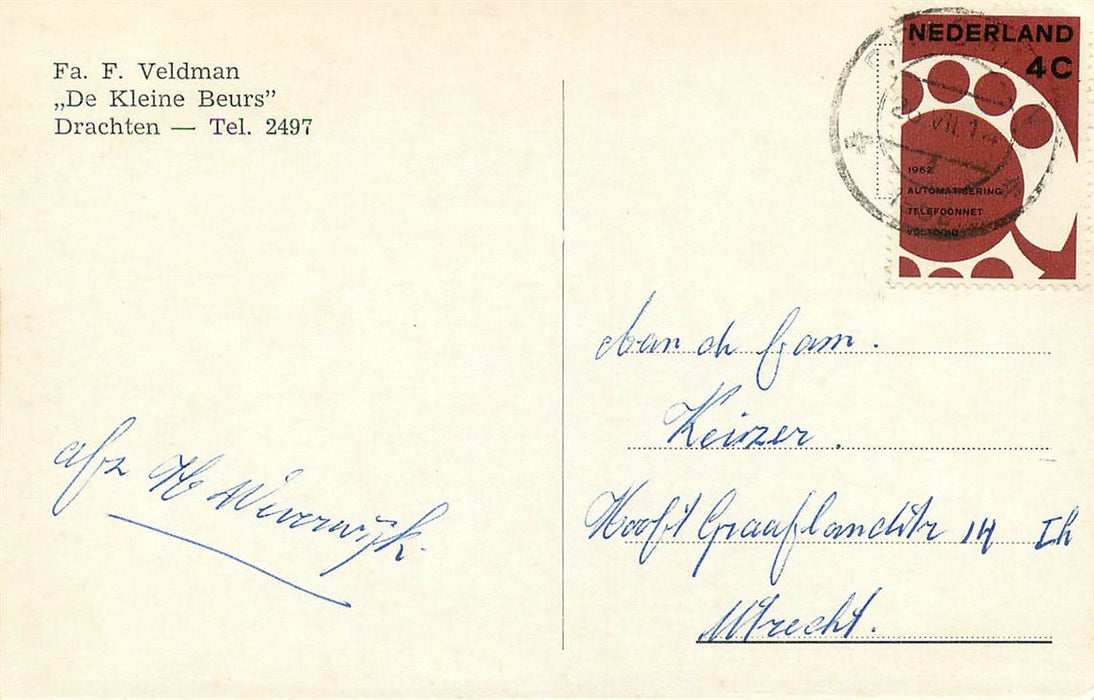 Fa. F. Veldman
„De Kleine Beurs”
Drachten — Tel. 2497
NEDERLAND
4C
1962
AUTOMATISERING
TELEFOONNET
VOLTOOID
20 VII 14
Aan de Fam.
Keizer.
Hooft Graaflandstr 14 Ih
Utrecht.
afz H